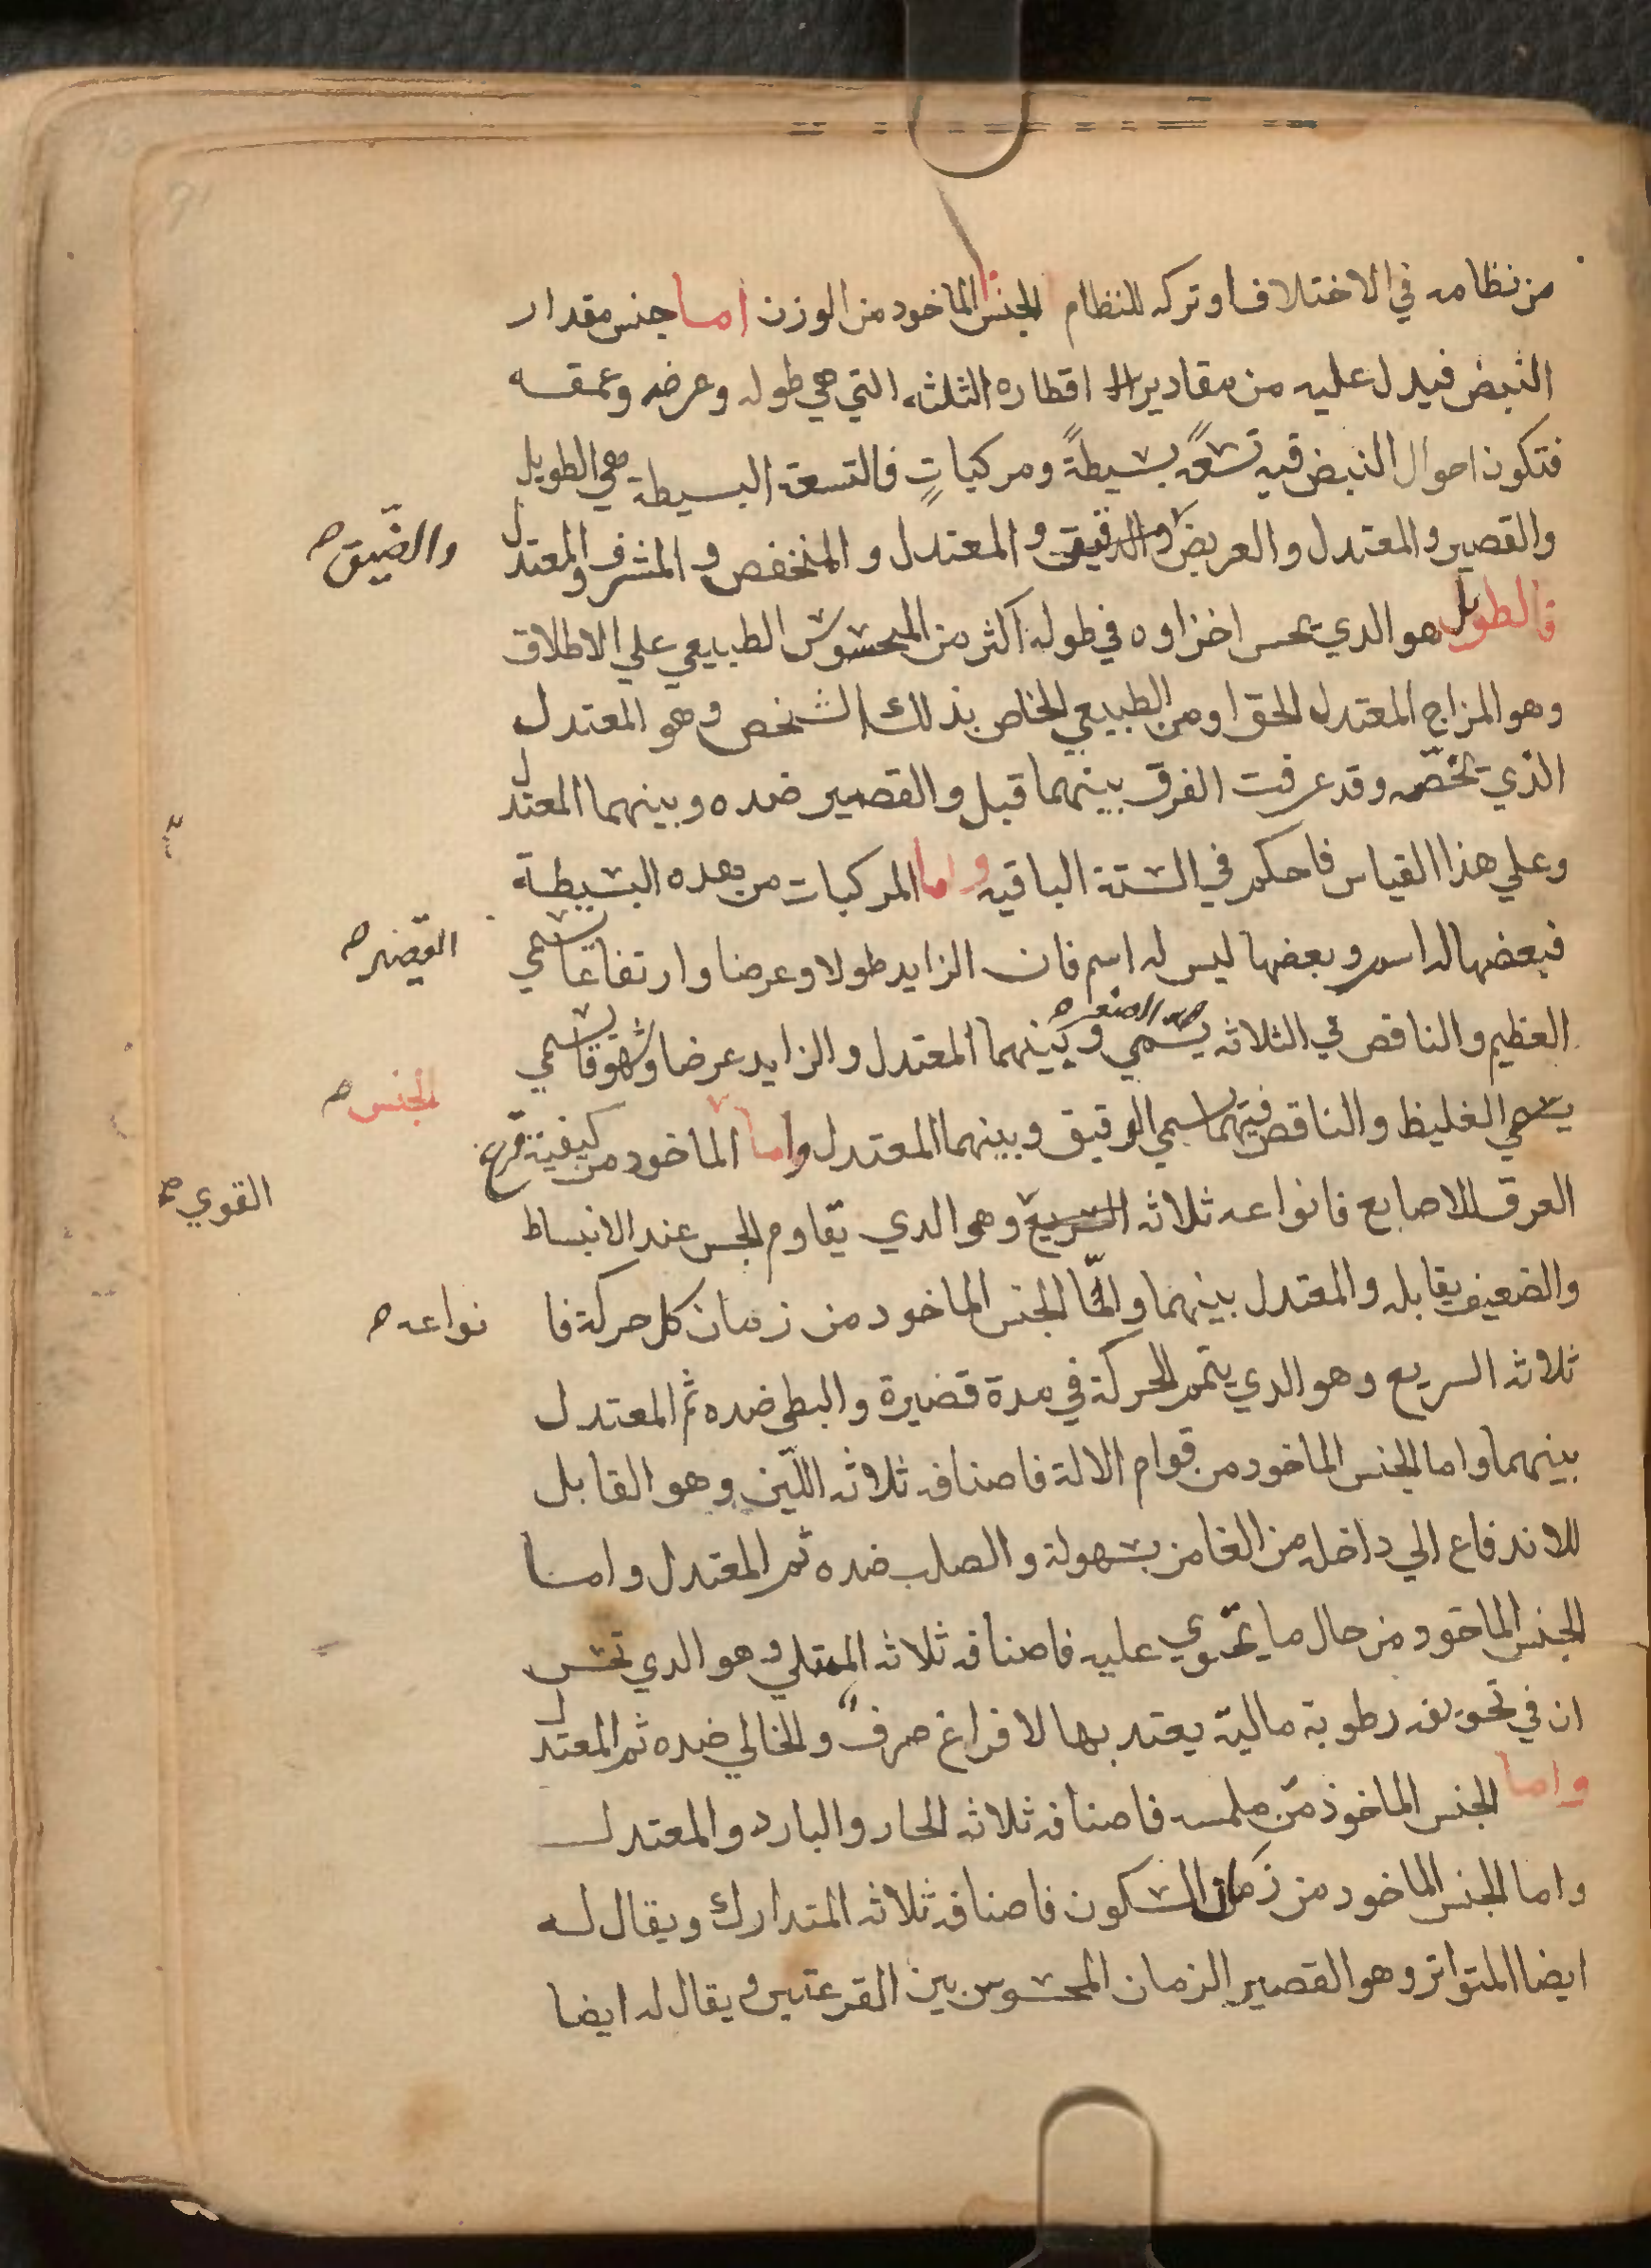 من نظامه في الاختلاف او تركه للنظام الجنس الماخود من الوزن اما جنس مقدار
النبض فيدل عليه من مقادير اقطاره الثلثه التي هي طوله وعرضه وعمقه
فتكون احوال النبض فيه تسعةً بسيطةً ومركباتٍ فالتسعة البسيطة هي الطويل
والقصير والمعتدل والعريض والدقيق والمعتدل والمنخفص والمشرف والمعتدل
والضّيق صح
فالطويل هو الدي تحس اخزاوه في طوله اكثر من المحسوس الطبيعي علي الاطلاق
وهو المزاج المعتدل الحق او من الطبيعي الخاص بذلك الشخص وهو المعتدل
الذي تخصّه وقد عرفت الفرق بينهما قبل والقصير ضده وبينهما المعتدل
وعلي هذا القياس فاحكم في الستة الباقيه واما المركبات من هده البسيطة
فبعضها له اسم وبعضها ليس له اسم فان الزايد طولا وعرضا وارتفاعا يسمي
القصير صح
العظيم والناقص في الثلاثه يسمي وبينهما المعتدل والزايد عرضا وشهوقا يسمي
الصغير صح
الجنس صح
يسمي الغليظ والناقص فيهما يسمي الرقيق وبينهما المعتدل واما الماخود من كيفية قرع
العرق للاصابع فانواعه ثلاثه السريع وهو الدي يقاوم الجس عند الانبساط
القوي صح
والضعيف يقابله والمعتدل بينهما واما الجنس الماخود من زمان كل حركة فا نواعه صح
ثلاثه السريع وهو الدي يتمم الحركة في مدة قضيرة والبطي ضده ثم المعتدل
بينهما واما الجنس الماخود من قوام الالة فاصنافه ثلاثه اللّين وهو القابل
للاندفاع الي داخل من الغامز بسهولة والصلب ضده ثم المعتدل واما
الجنس الماخود من حال ما يحتوي عليه فاصنافه ثلاثه الممتلي وهو الدي تحس
ان في تحويفه رطوبة مالية يعتد بها لا فراغ صرف والخالي ضده ثم المعتدل
واما الجنس الماخوذ من ملمسه فاصنافه ثلاثه الحار والبارد والمعتدل
واما الجنس الماخود من زمان السكون فاصنافه ثلاثه المتدارك ويقال له
ايضا المتواتر وهو القصير الزمان المحسوس بين القرعتين ويقال له ايضا